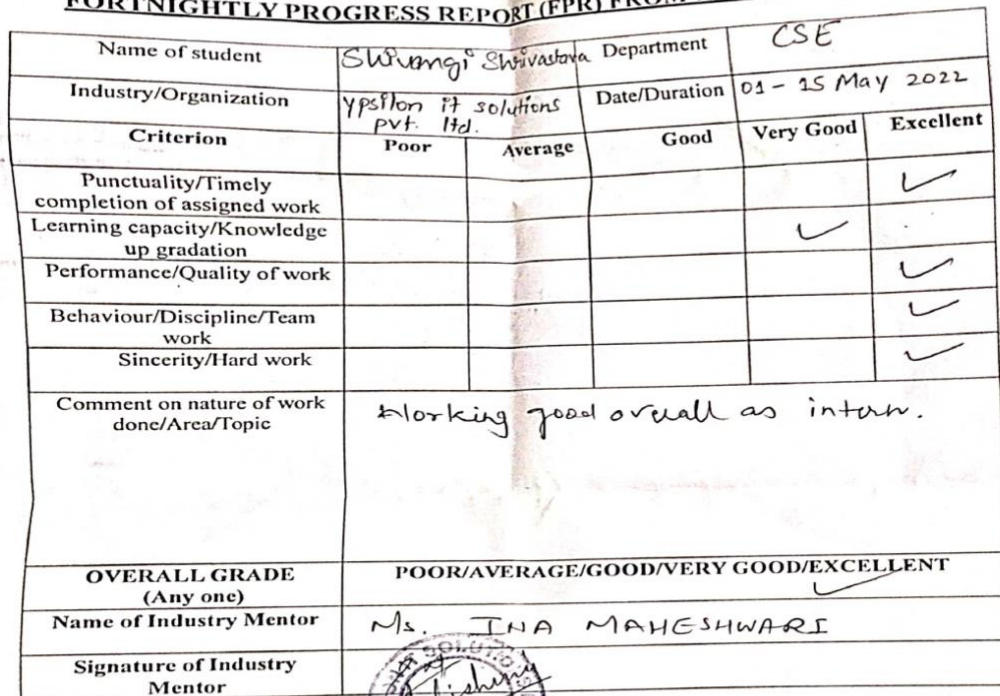 FORTNIGHTLY PROGRESS REPORT (FPR)
Name of student Shivangi Shrivastava Department CSE
Industry/Organization Ypsilon it solutions pvt. ltd. Date/Duration 01 - 15 May 2022
Criterion Poor Average Good Very Good Excellent
Punctuality/Timely
completion of assigned work
Learning capacity/Knowledge
up gradation
Performance/Quality of work
Behaviour/Discipline/Team
work
Sincerity/Hard work
Comment on nature of work
done/Area/Topic
Working good overall as intern.
OVERALL GRADE
(Any one)
POOR/AVERAGE/GOOD/VERY GOOD/EXCELLENT
Name of Industry Mentor Ms. INA MAHESHWARI
Signature of Industry
Mentor